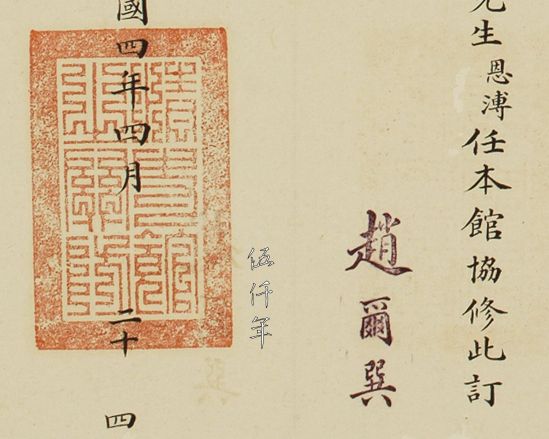 先生恩溥任本館協修此訂
趙爾巽
伍仟年
國四年四月二十四